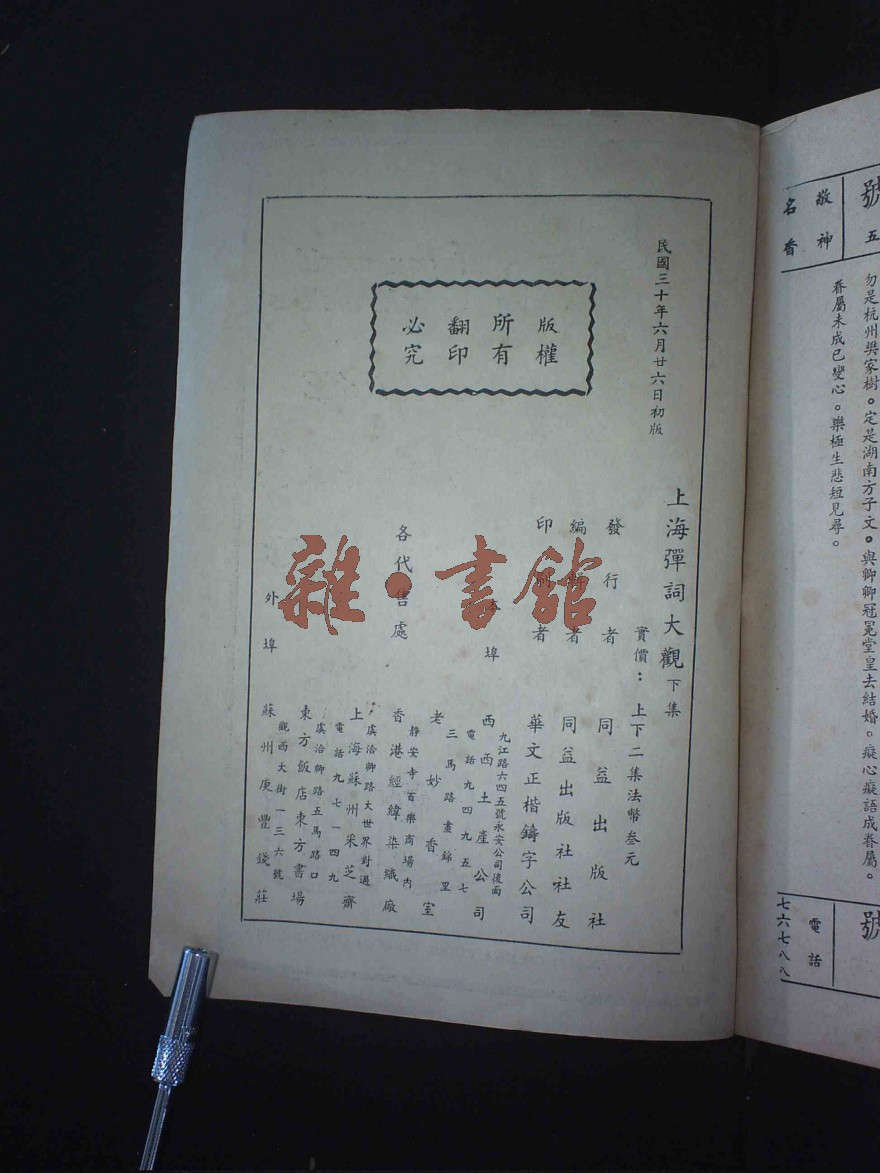 民國三十年六月廿六日初版
版權
所有
翻印
必究
上海彈詞大觀下集
實價：上下二集法幣叁元
發行者 同益出版社
編輯者 同益出版社社友
印刷者 華文正楷鑄字公司
各代售處
本埠
九江路六四五號永安公司後面
西西土產公司
電話九四九五七
三馬路畫錦里
老妙香室
靜安寺百樂商場內
香港經緯染織廠
虞洽卿路大世界對過
上海蘇州采芝齋
電話九七一四九
虞洽卿路五馬路口
東方飯店東方書場
外埠
觀西大街一三六號
蘇州庚豐錢莊
雜·書館
號
五
敬神
名香
勿是杭州樊家樹。定是湖南方子文。與卿卿冠冕堂皇去結婚。癡心癡語成眷屬。
眷屬未成已變心。樂極生悲短見尋。
號
電話
七六七八八